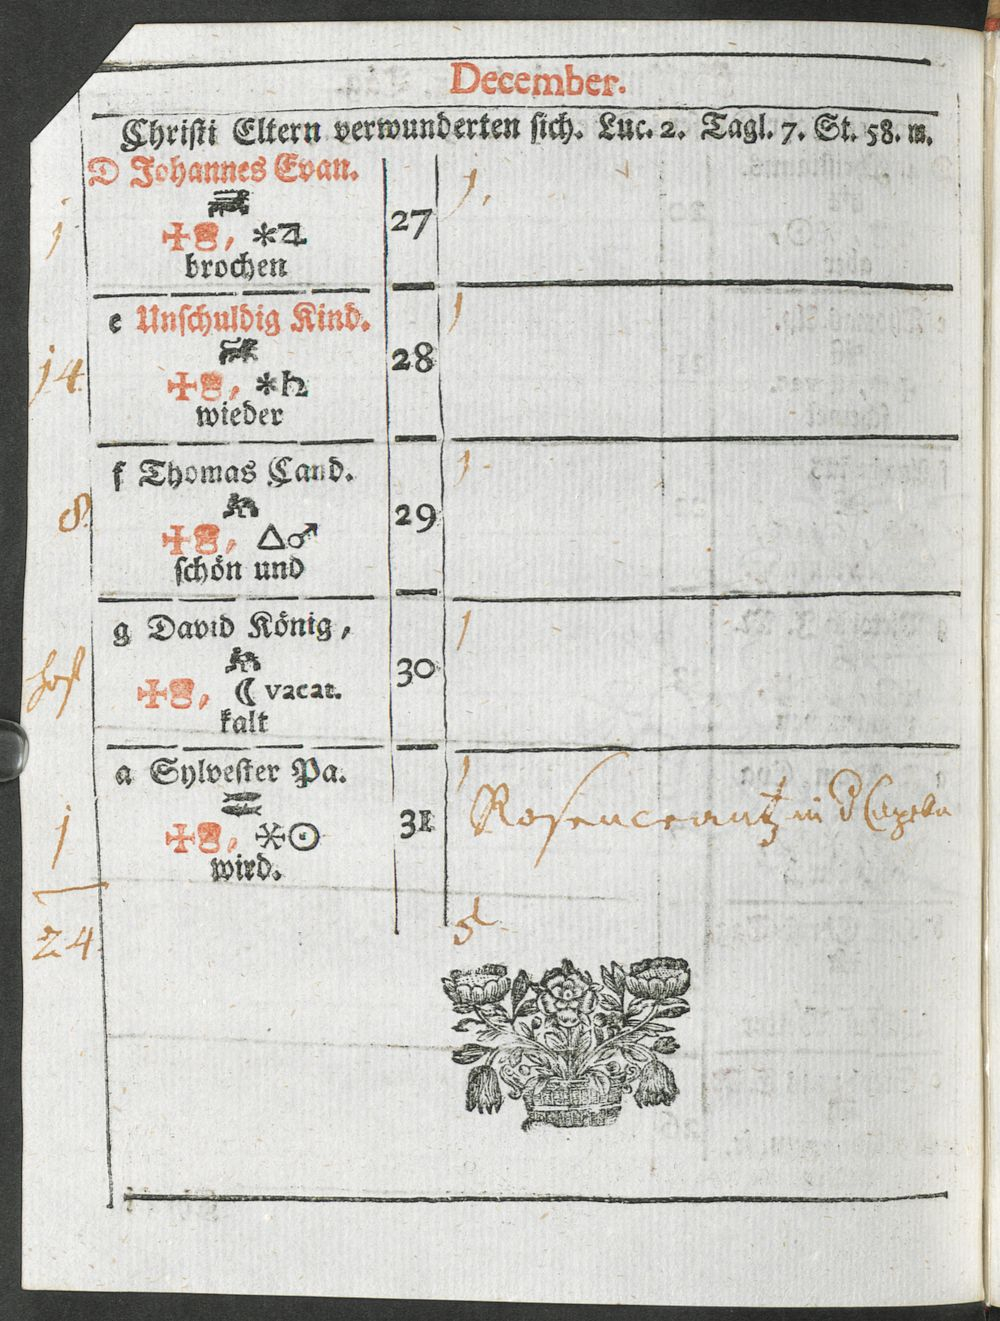 December.
Christi Eltern verwunderten sich. Luc. 2. Tagl. 7. St. 58. m.
D Johannes Evan.
27
1.
1
✠, ⚹♃
brochen
e Unschuldig Kind.
28
1
14.
✠, ⚹♄
wieder
f Thomas Cand.
29
1.
8.
✠, △♂
schön und
g David König,
30
1
✠, ☾ vacat.
kalt
a Sylvester Pa.
31
1
Rosencrantz in
1
✠, ⚹☉
wird.
24.
5